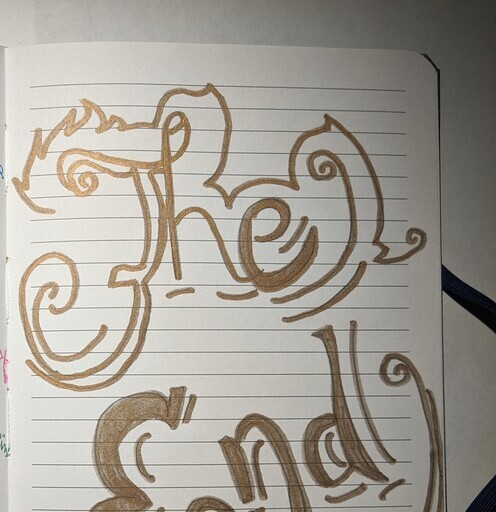 The
End